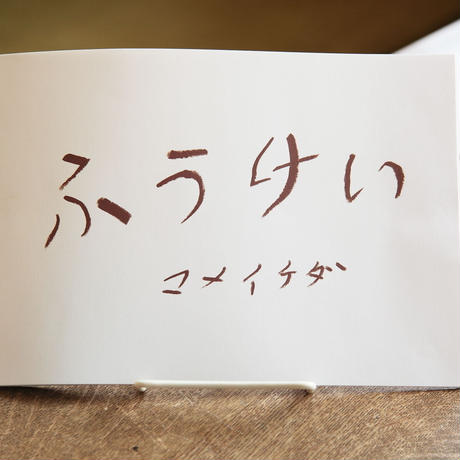 ふうけい
コメイケダ